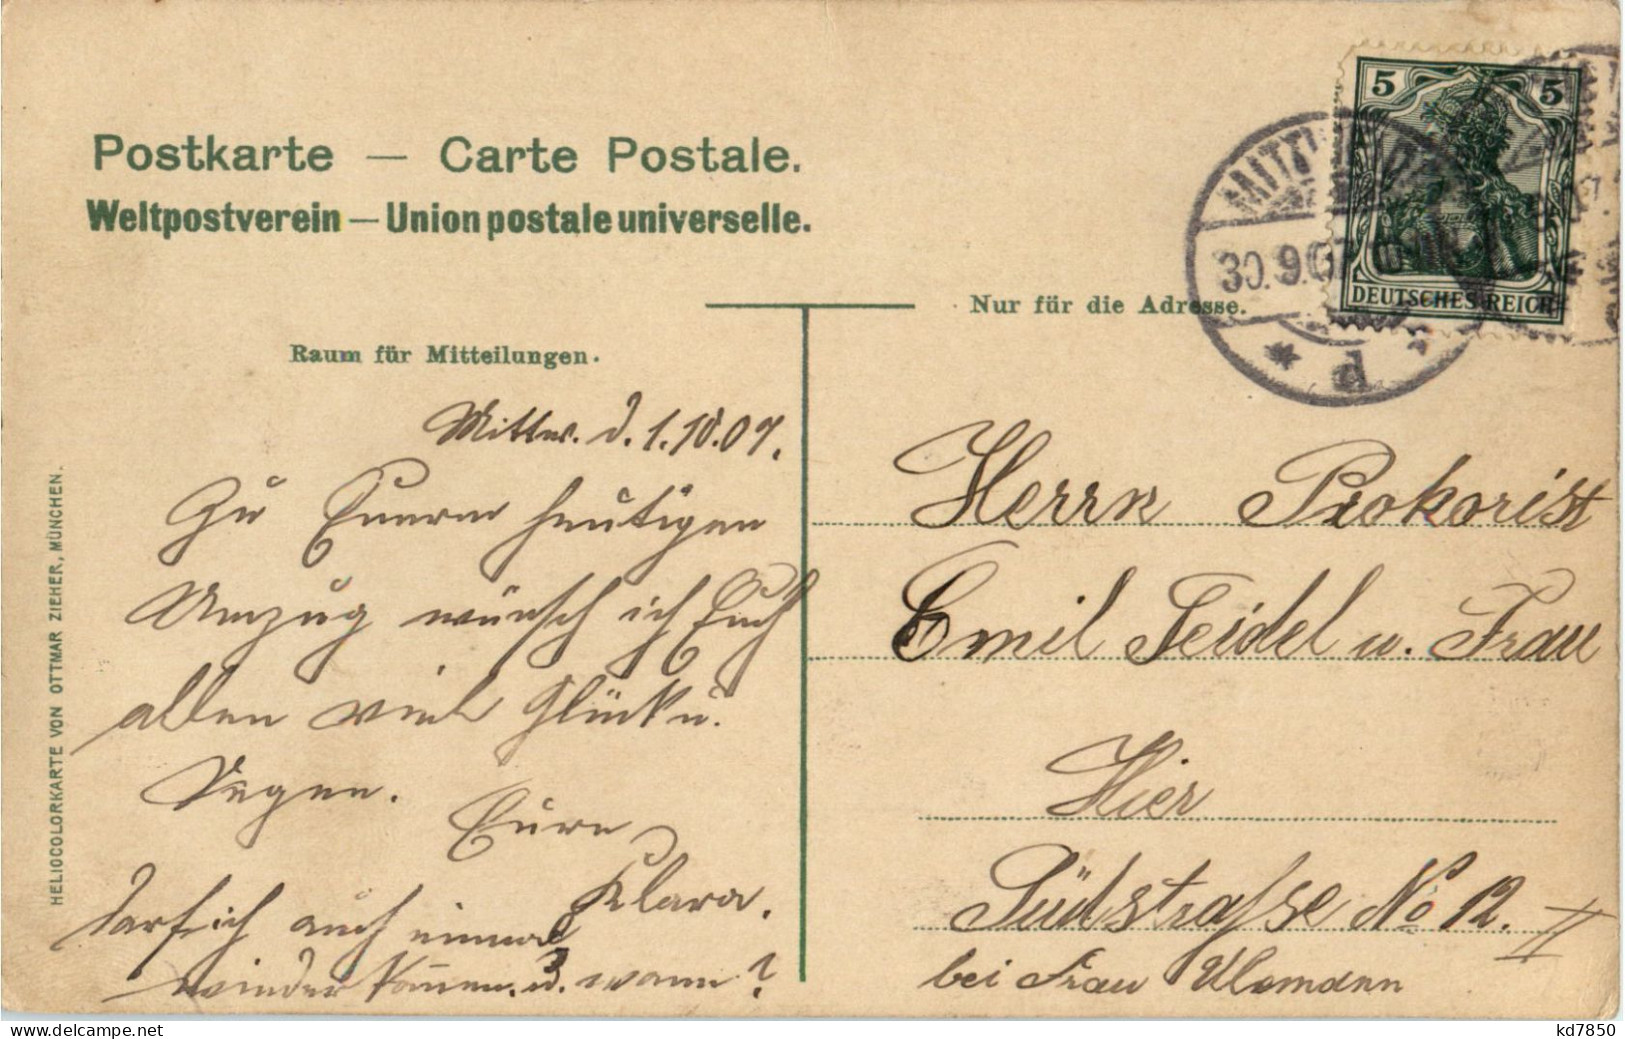 Postkarte — Carte Postale.
Weltpostverein — Union postale universelle.
Nur für die Adresse.
Raum für Mitteilungen.
HELIOCOLORKARTE VON OTTMAR ZIEHER, MÜNCHEN.
5 5
DEUTSCHES REICH
30.9.07
Mittw. d. 1.10.07.
Zu Eurem heutigen
Umzug wünsch ich Euch
allen viel Glück u.
Segen.
Eure
Klara.
Darf ich auch einmal
wieder kommen. u. wann?
Herrn Prokorist
Emil Seidel u. Frau
Hier
Südstrasse No 12. II
bei Frau
kd7850